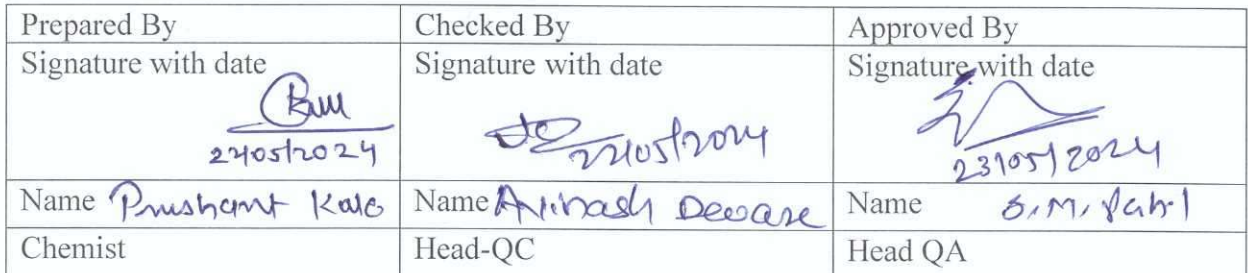 Prepared By Checked By Approved By
Signature with date Signature with date Signature with date
22/05/2024 22/05/2024 23/05/2024
Name Prashant Kale Name Avinash Deware Name S.M. Patil
Chemist Head-QC Head QA